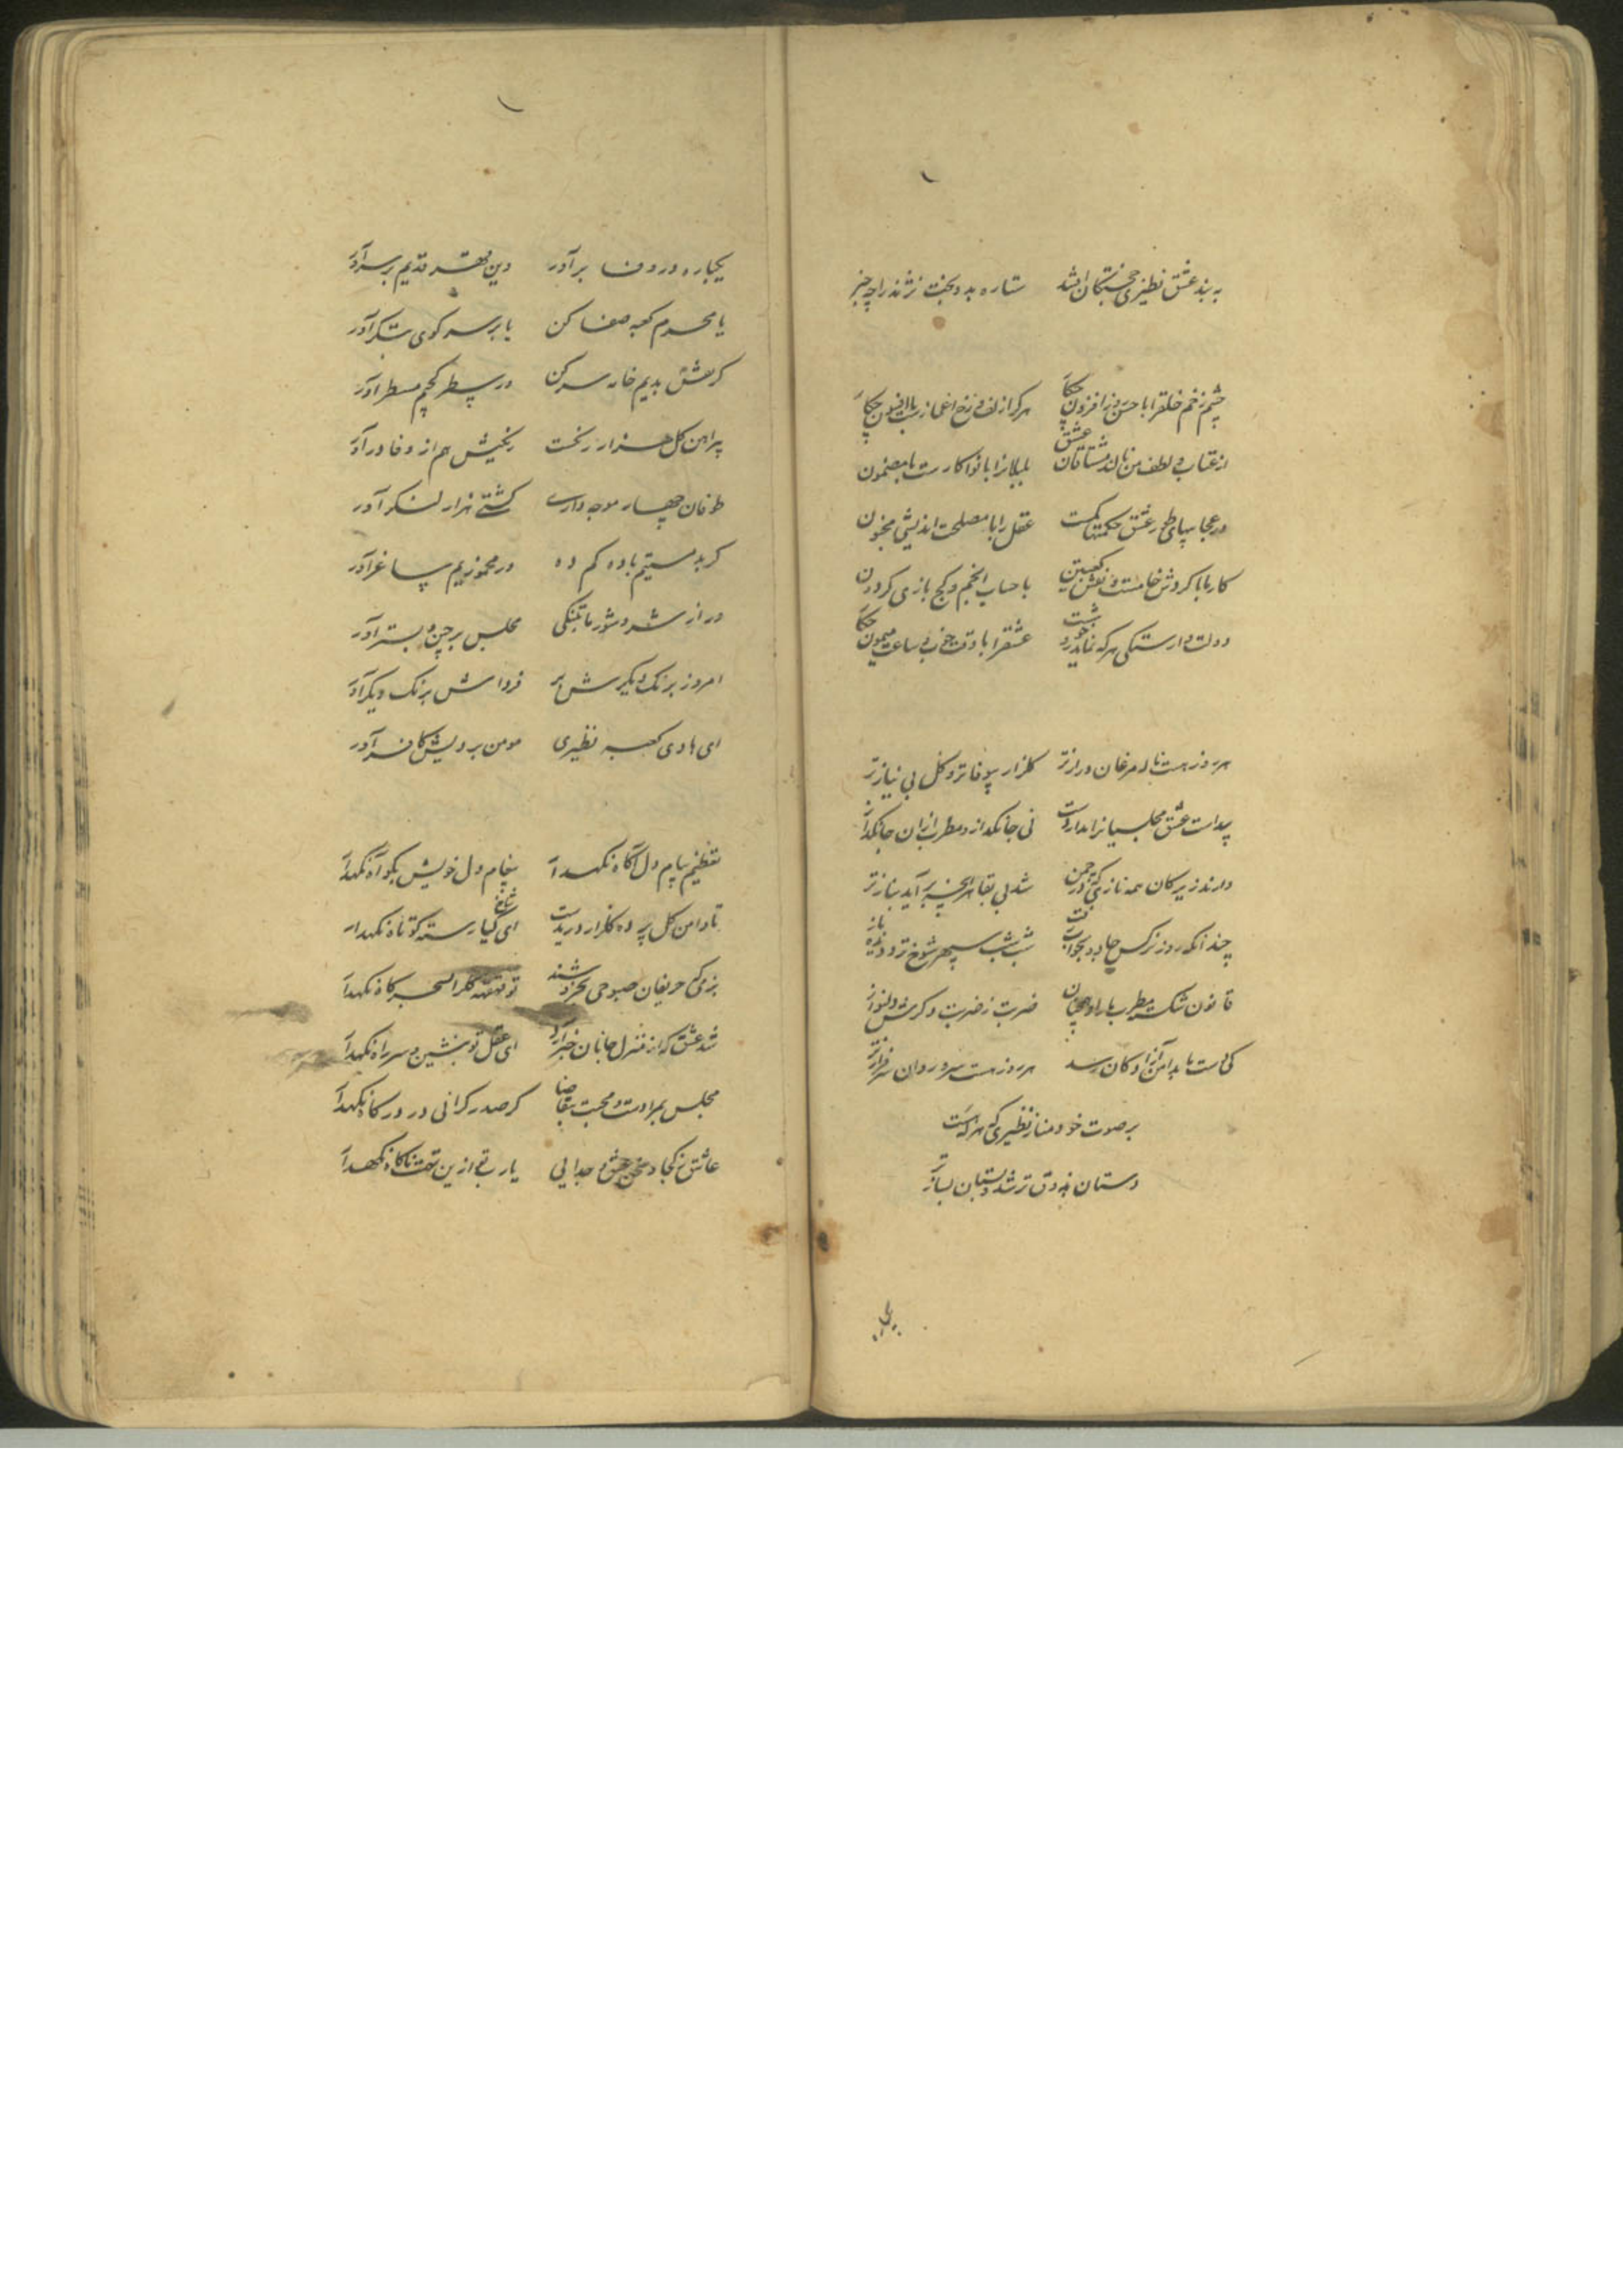 به بند عشق نظیری خجستگان افتند ستاره بد و بخت نژند را چه خبر
چشم زخم خلق را با حسن روز افزون چکار هر که از زلف و رخ اعجاز است با افسون چکار
از عتاب و لطف من نالند مشتاقان عشق بلبلان را با نوا کارست با مضمون
در عجایبهای طور عشق حکمتها کمست عقل را با مصلحت اندیشی مجنون
کار ما با گردش خامست و نقش کعبتین با حساب انجم و کج بازی گردون
دولت وارستگی هر که نماید رو خوشست عشق را با وقت خوب و ساعت میمون چکار
هر روز هست ناله مرغان درازتر گلزار بیوفاتر و گل بی نیازتر
پیداست عشق مجلسیان را مدار دوست نی جانگداز و مطرب از آن جانگدازتر
دارند زیرکان همه نازی که در چمن شد بی بقا هر آنچه برآید بنازتر
چندانکه روز نرگس جادو بخواب شب شب سپهر شوخ تر و دیده بازتر
قانون شکست مطرب ما را و همچنان ضربت ز ضربت دگرش دلنوازتر
کی دست ما بدامن آزادگان رسد هر روز هست سرو روان سرفرازتر
بر صوت خود مناز نظیری که هر که هست
دستان بذوق تر شد و بستان بسازتر
یکباره در وفا برآور
یکباره در وفا برآور دین مهر قدیم بر سر آور
یا محرم کعبه صفا کن یا بر سر کوی بتگر آور
گر نقش بدیم خانه سر کن ور سطر کجیم مسطر آور
پیراهن گل هزار رنگست رنگیش هم از وفا درآور
طوفان چهار موجه داری کشتی هزار لنگر آور
گر بد مستیم باده کم ده ور مخموریم ساغر آور
ور از شر و شور ما بتنگی مجلس برچین و بستر آور
امروز برنگ دیگرش بر فرداش برنگ دیگر آور
ای هادی کعبه نظیری مومن بر دیش کافر آور
تعظیم پیام دل آگاه نگهدار پیغام دل خویش بگو آه نگهدار
تا دامن گل پرده گلزار دریدست ای گیارسته شاخ کوتاه نگهدار
بزم حریفان صبوحی بخروشند تو قهقهه سحرگاه نگهدار
شد عشق که از منزل جانان خبر آرد ای عقل تو بنشین و سر راه نگهدار
مجلس بمرادست و محبت بتقاضا گر صدر گرانی در درگاه نگهدار
عاشق ز کجا و سخن عیش و جدایی یا رب تو ازین تهمت ناگاه نگهدار